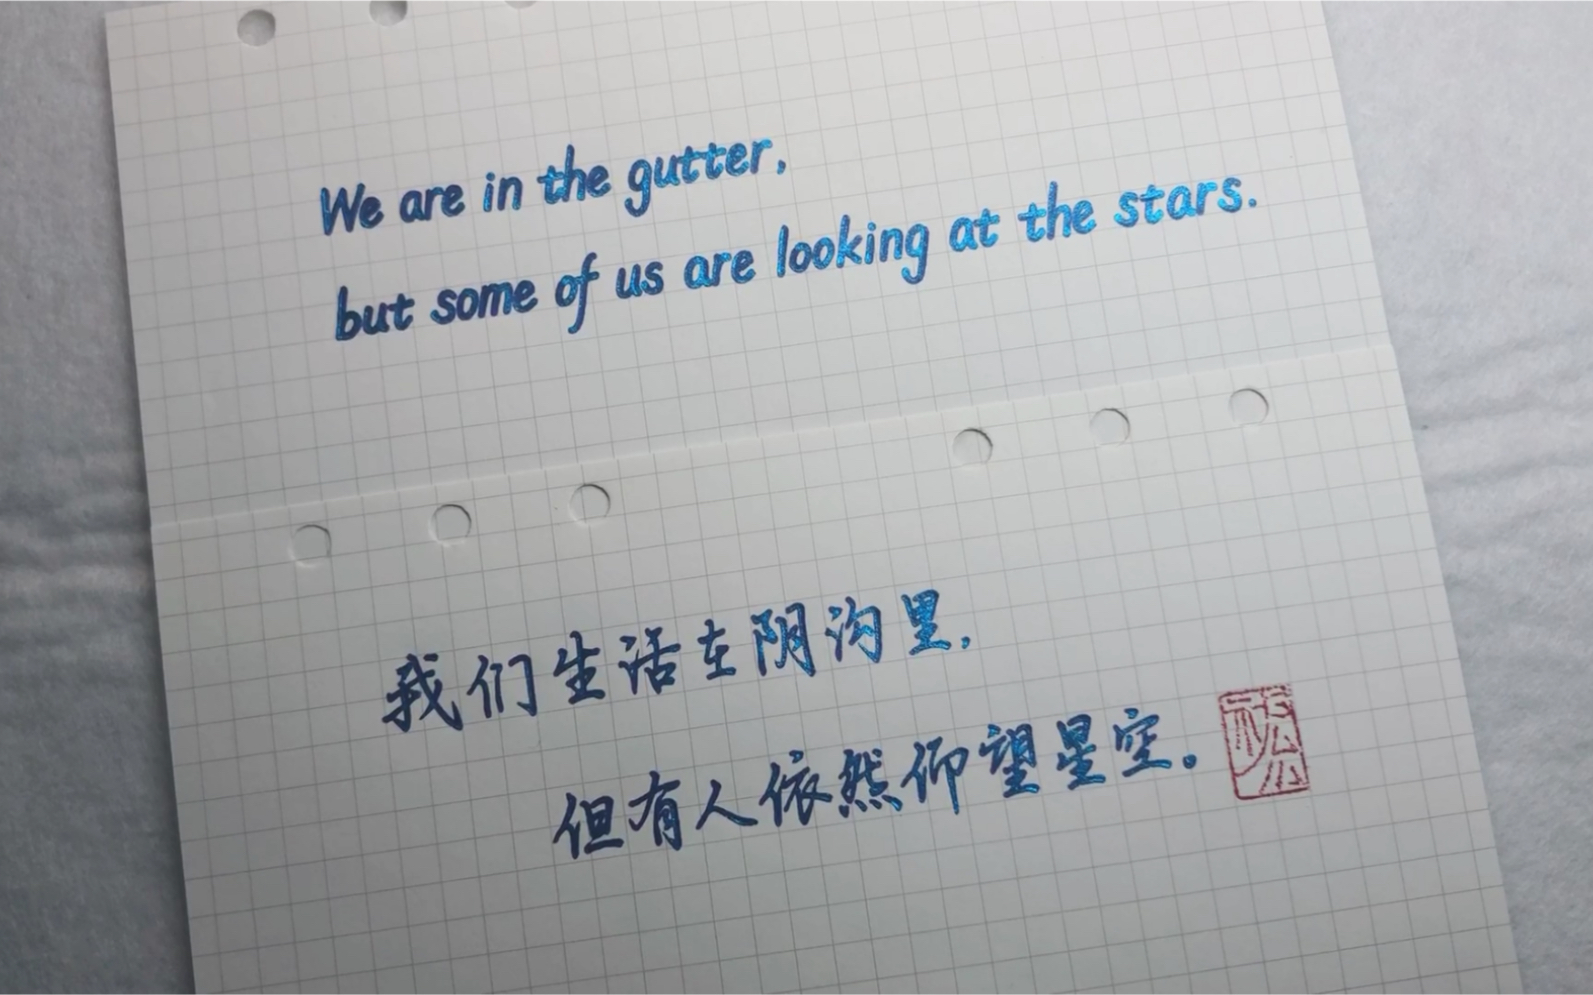 We are in the gutter,
but some of us are looking at the stars.
我们生活在阴沟里,
但有人依然仰望星空。